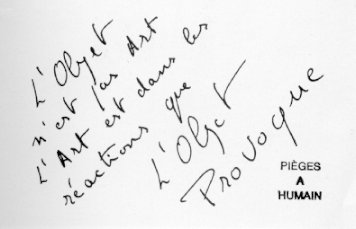 L'Objet
n'est pas Art
L'Art est dans les
réactions que
L'Objet
Provoque
PIÈGES
A
HUMAIN